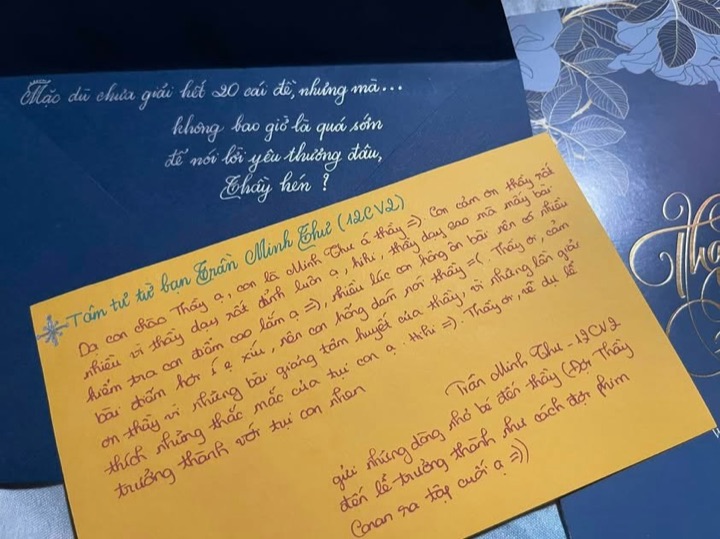 Mặc dù chưa giải hết 20 cái đề, nhưng mà...
không bao giờ là quá sớm
để nói lời yêu thương đâu,
Thầy hén ?
Tâm tư từ bạn Trần Minh Thư (12CV2)
Dạ con chào Thầy ạ, con là Minh Thư á thầy =). Con cảm ơn thầy rất
nhiều vì thầy dạy rất đỉnh luôn ạ, hihi, thầy dạy sao mà mấy bài
kiểm tra con điểm cao lắm ạ =), nhiều lúc con hổng ôn bài nên có nhiều
bài điểm hơi í ẹ xíu, nên con hổng dám nói thầy =(. Thầy ơi, cảm
ơn thầy vì những bài giảng tâm huyết của thầy, vì những lần giải
thích những thắc mắc của tụi con ạ. Hihi =). Thầy ơi, về dự lễ
trưởng thành với tụi con nhen
Trần Minh Thư - 12CV2
gửi những dòng nhỏ bé đến thầy (đợi Thầy
đến lễ trưởng thành như cách đợi phim
Conan ra tập cuối ạ =))
Tha